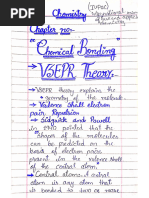 Chemistry
(IUPAC)
Chapter no:-
"Chemical Bonding"
→ VSEPR Theory:-
→ VSEPR theory explains the
geometry of the molecule
→ Valence Shell electron
pair Repulsion
→ Sidgwick and Powell
in
can be predicted on the
basis of electron pairs
present in the valence shell
of the central atom.
→ Central atom: A central
atom is any atom that
is bonded to two or more